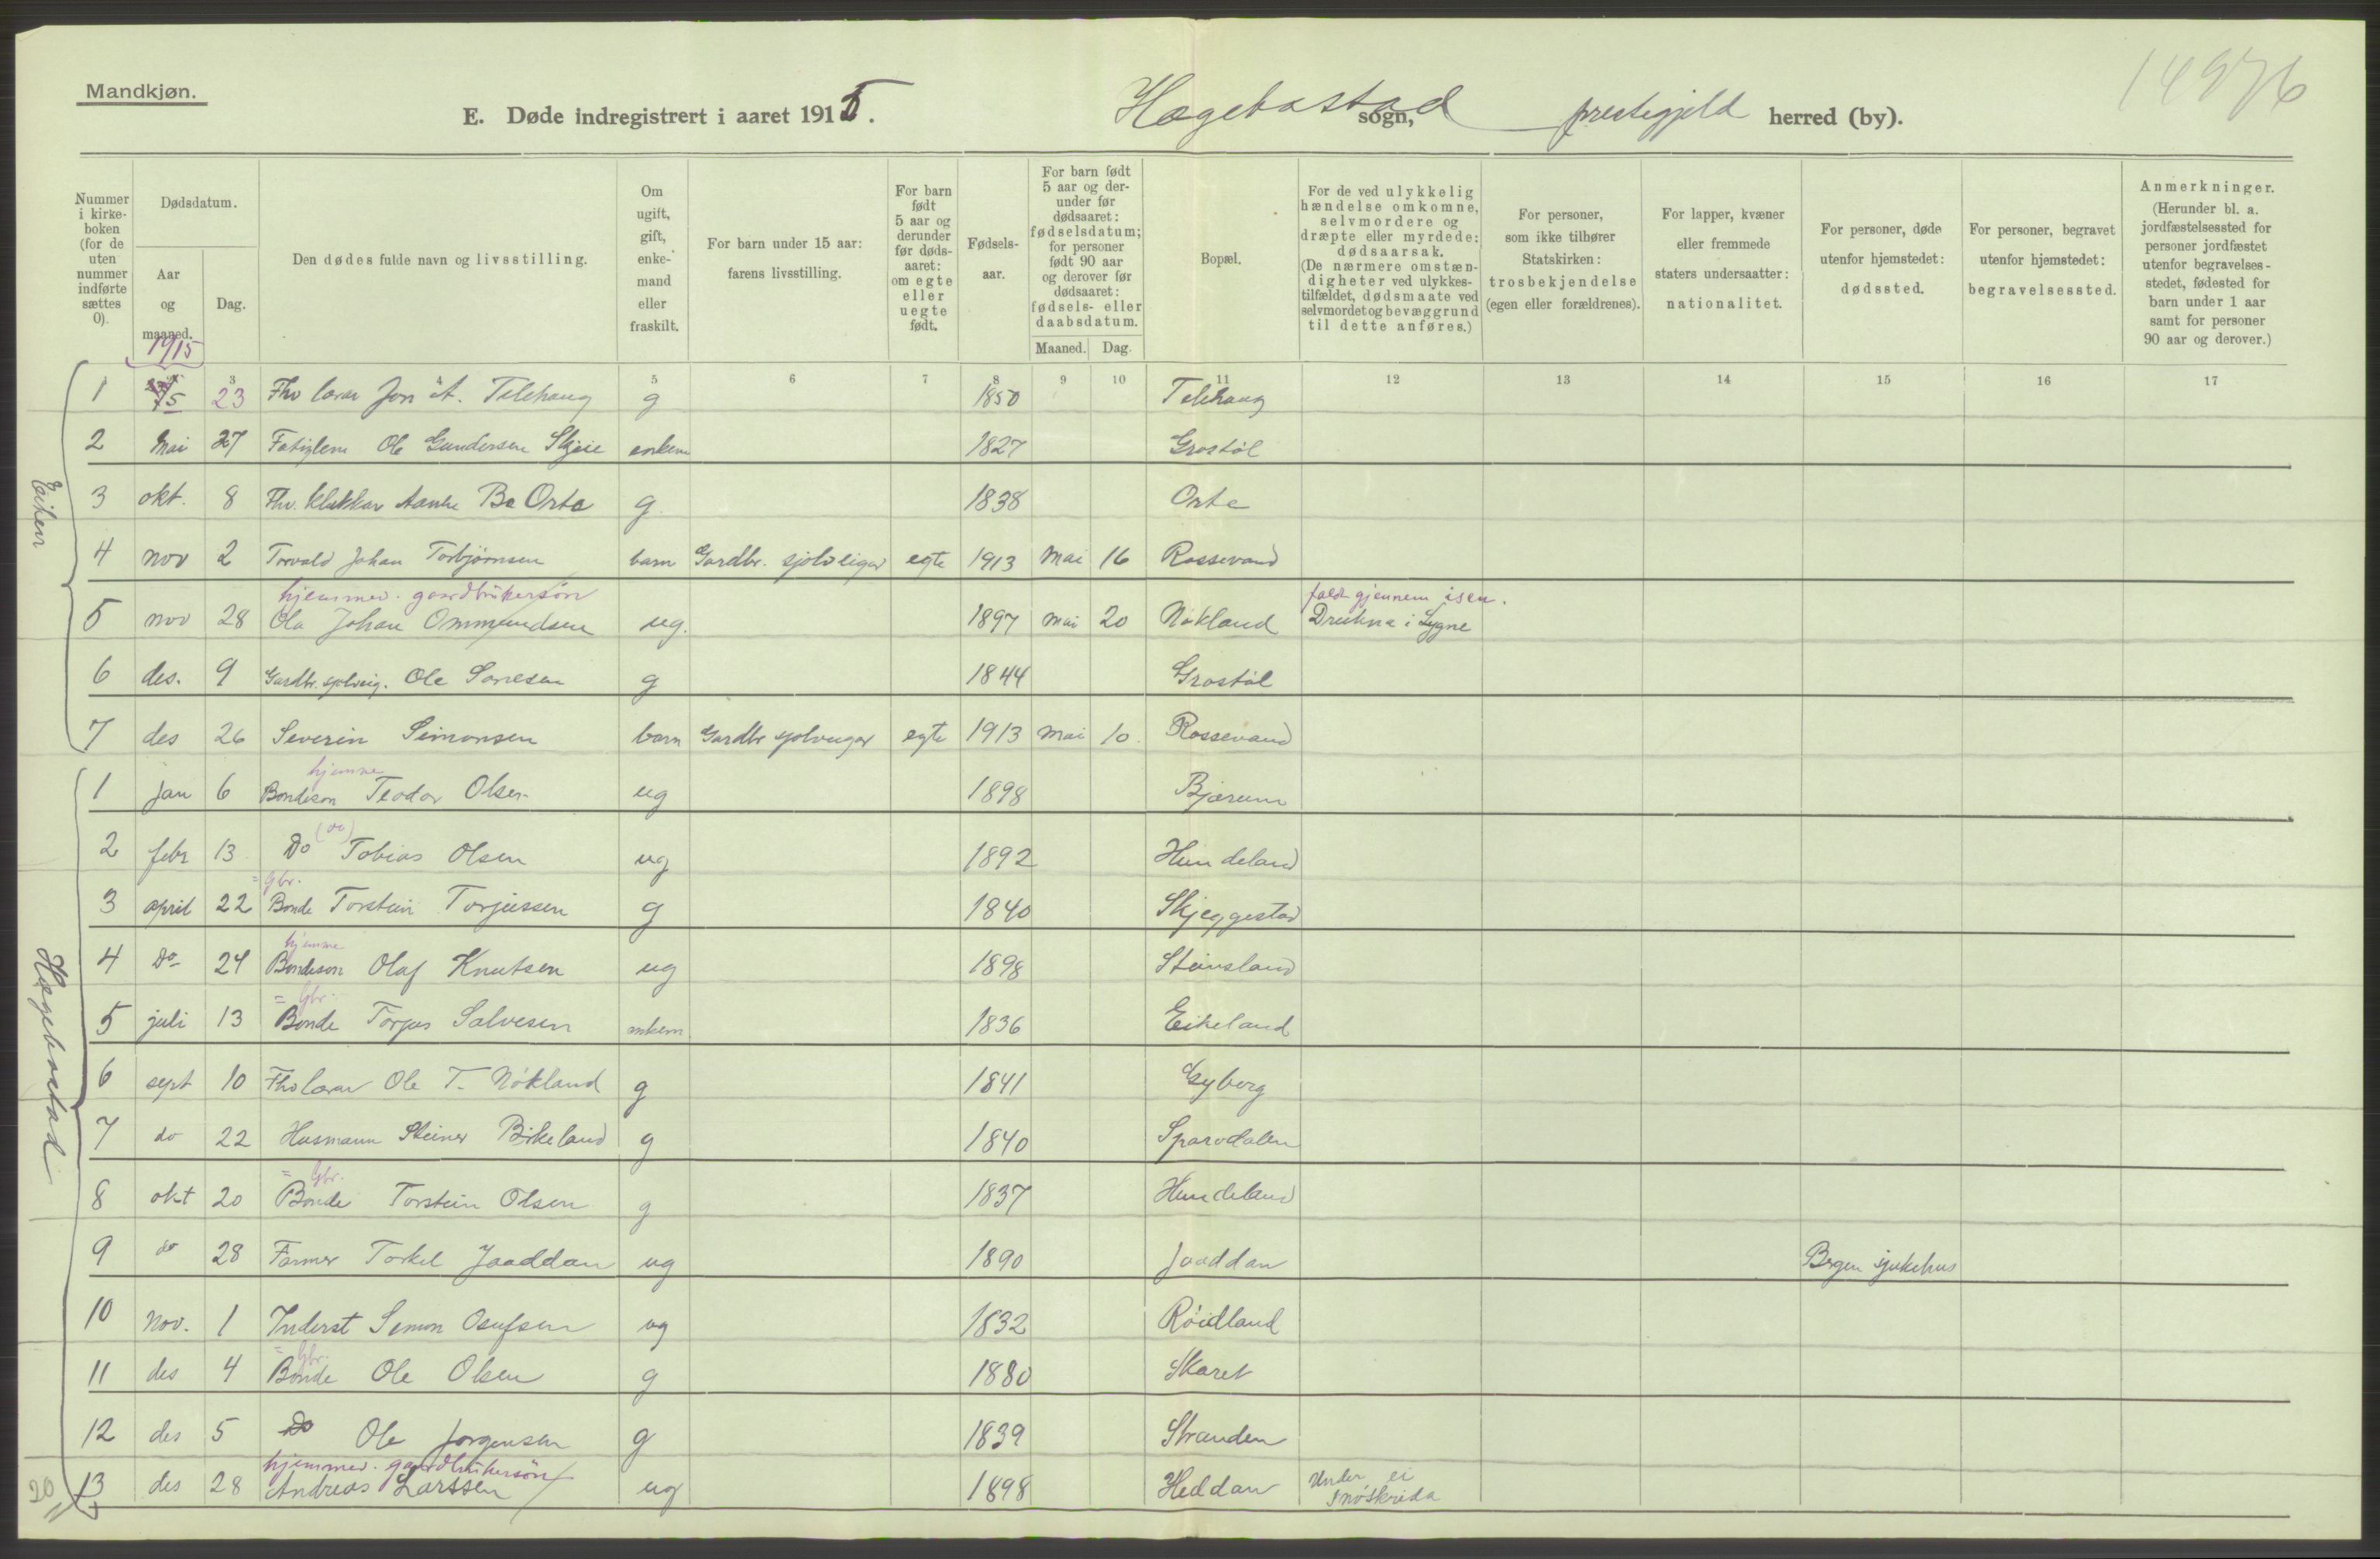 Mandkjøn.
14976
E. Døde indregistrert i aaret 1915. Hægebostad sogn, prestegjeld herred (by).
Nummer i kirke-boken (for de uten nummer indførte sættes 0).
Dødsdatum.
Aar og maaned.
Dag.
Den dødes fulde navn og livsstilling.
Om ugift, gift, enke-mand eller fraskilt.
For barn under 15 aar: farens livsstilling.
For barn født 5 aar og derunder før døds-aaret: om egte eller uegte født.
Fødsels-aar.
For barn født 5 aar og der-under før dødsaaret: fødselsdatum; for personer født 90 aar og derover før dødsaaret: fødsels- eller daabsdatum.
Maaned. Dag.
Bopæl.
For de ved ulykkelig hændelse omkomne, selvmordere og dræpte eller myrdede: dødsaarsak. (De nærmere omstæn-digheter ved ulykkes-tilfældet, dødsmaate ved selvmordet og bevæggrund til dette anføres.)
For personer, som ikke tilhører Statskirken: trosbekjendelse (egen eller forældrenes).
For lapper, kvæner eller fremmede staters undersaatter: nationalitet.
For personer, døde utenfor hjemstedet: dødssted.
For personer, begravet utenfor hjemstedet: begravelsessted.
Anmerkninger. (Herunder bl. a. jordfæstelsessted for personer jordfæstet utenfor begravelses-stedet, fødested for barn under 1 aar samt for personer 90 aar og derover.)
1915
3 4 5 6 7 8 9 10 11 12 13 14 15 16 17
Eiken
1 23 Fhv lærar Jon A. Telehaug g 1850 Telehaug
2 Mai 27 Ole Gundersen Skjeie enkem 1827 Grostøl
3 okt. 8 Fhv. klokkar Aanen Be Orte g 1838 Orte
4 nov 2 Torvald Johan Torbjørnsen barn Gardbr. sjølveigar egte 1913 Mai 16 Rossevand
hjemmev. gaardbrukersøn faldt gjennem isen.
5 nov 28 Ola Johan Ommundsen ug. 1897 mai 20 Nøkland Drukna i Lygne
6 des. 9 Gardbr. sjølveig. Ole Sørresen g 1844 Grostøl
7 des 26 Severin Simonsen barn Gardbr sjølveigar egte 1913 Mai 10. Rossevand
Hægebostad
hjemme
1 Jan 6 Bondeson Teodor Olsen ug 1898 Bjærum
(do)
2 febr 13 Do Tobias Olsen ug 1892 Hundeland
= Gbr.
3 april 22 Bonde Torstein Torjussen g 1840 Skjeggestad
hjemme
4 Do 24 Bondeson Olaf Knutsen ug 1898 Steinsland
= Gbr.
5 juli 13 Bonde Torjus Salvesen enkem 1836 Eikeland
6 sept 10 Fhv lærar Ole T. Nøkland g 1841 Gyberg
7 do 22 Husmann Steiner Birkeland g 1840 Sparvdalen
= Gbr.
8 okt 20 Bonde Torstein Olsen g 1837 Hundeland
9 do 28 Farmer Torkel Jaaddan ug 1890 Jaaddan Bergen sjukehus
10 Nov. 1 Inderst Simon Osufsen ug 1832 Røidland
= Gbr.
11 des 4 Bonde Ole Olsen g 1880 Skaret
12 des 5 Do Ole Jørgensen g 1839 Stranden
hjemmev. gaardbrukersøn
13 des 28 Andreas Larssen ug 1898 Heddan Under ei snøskrida
20